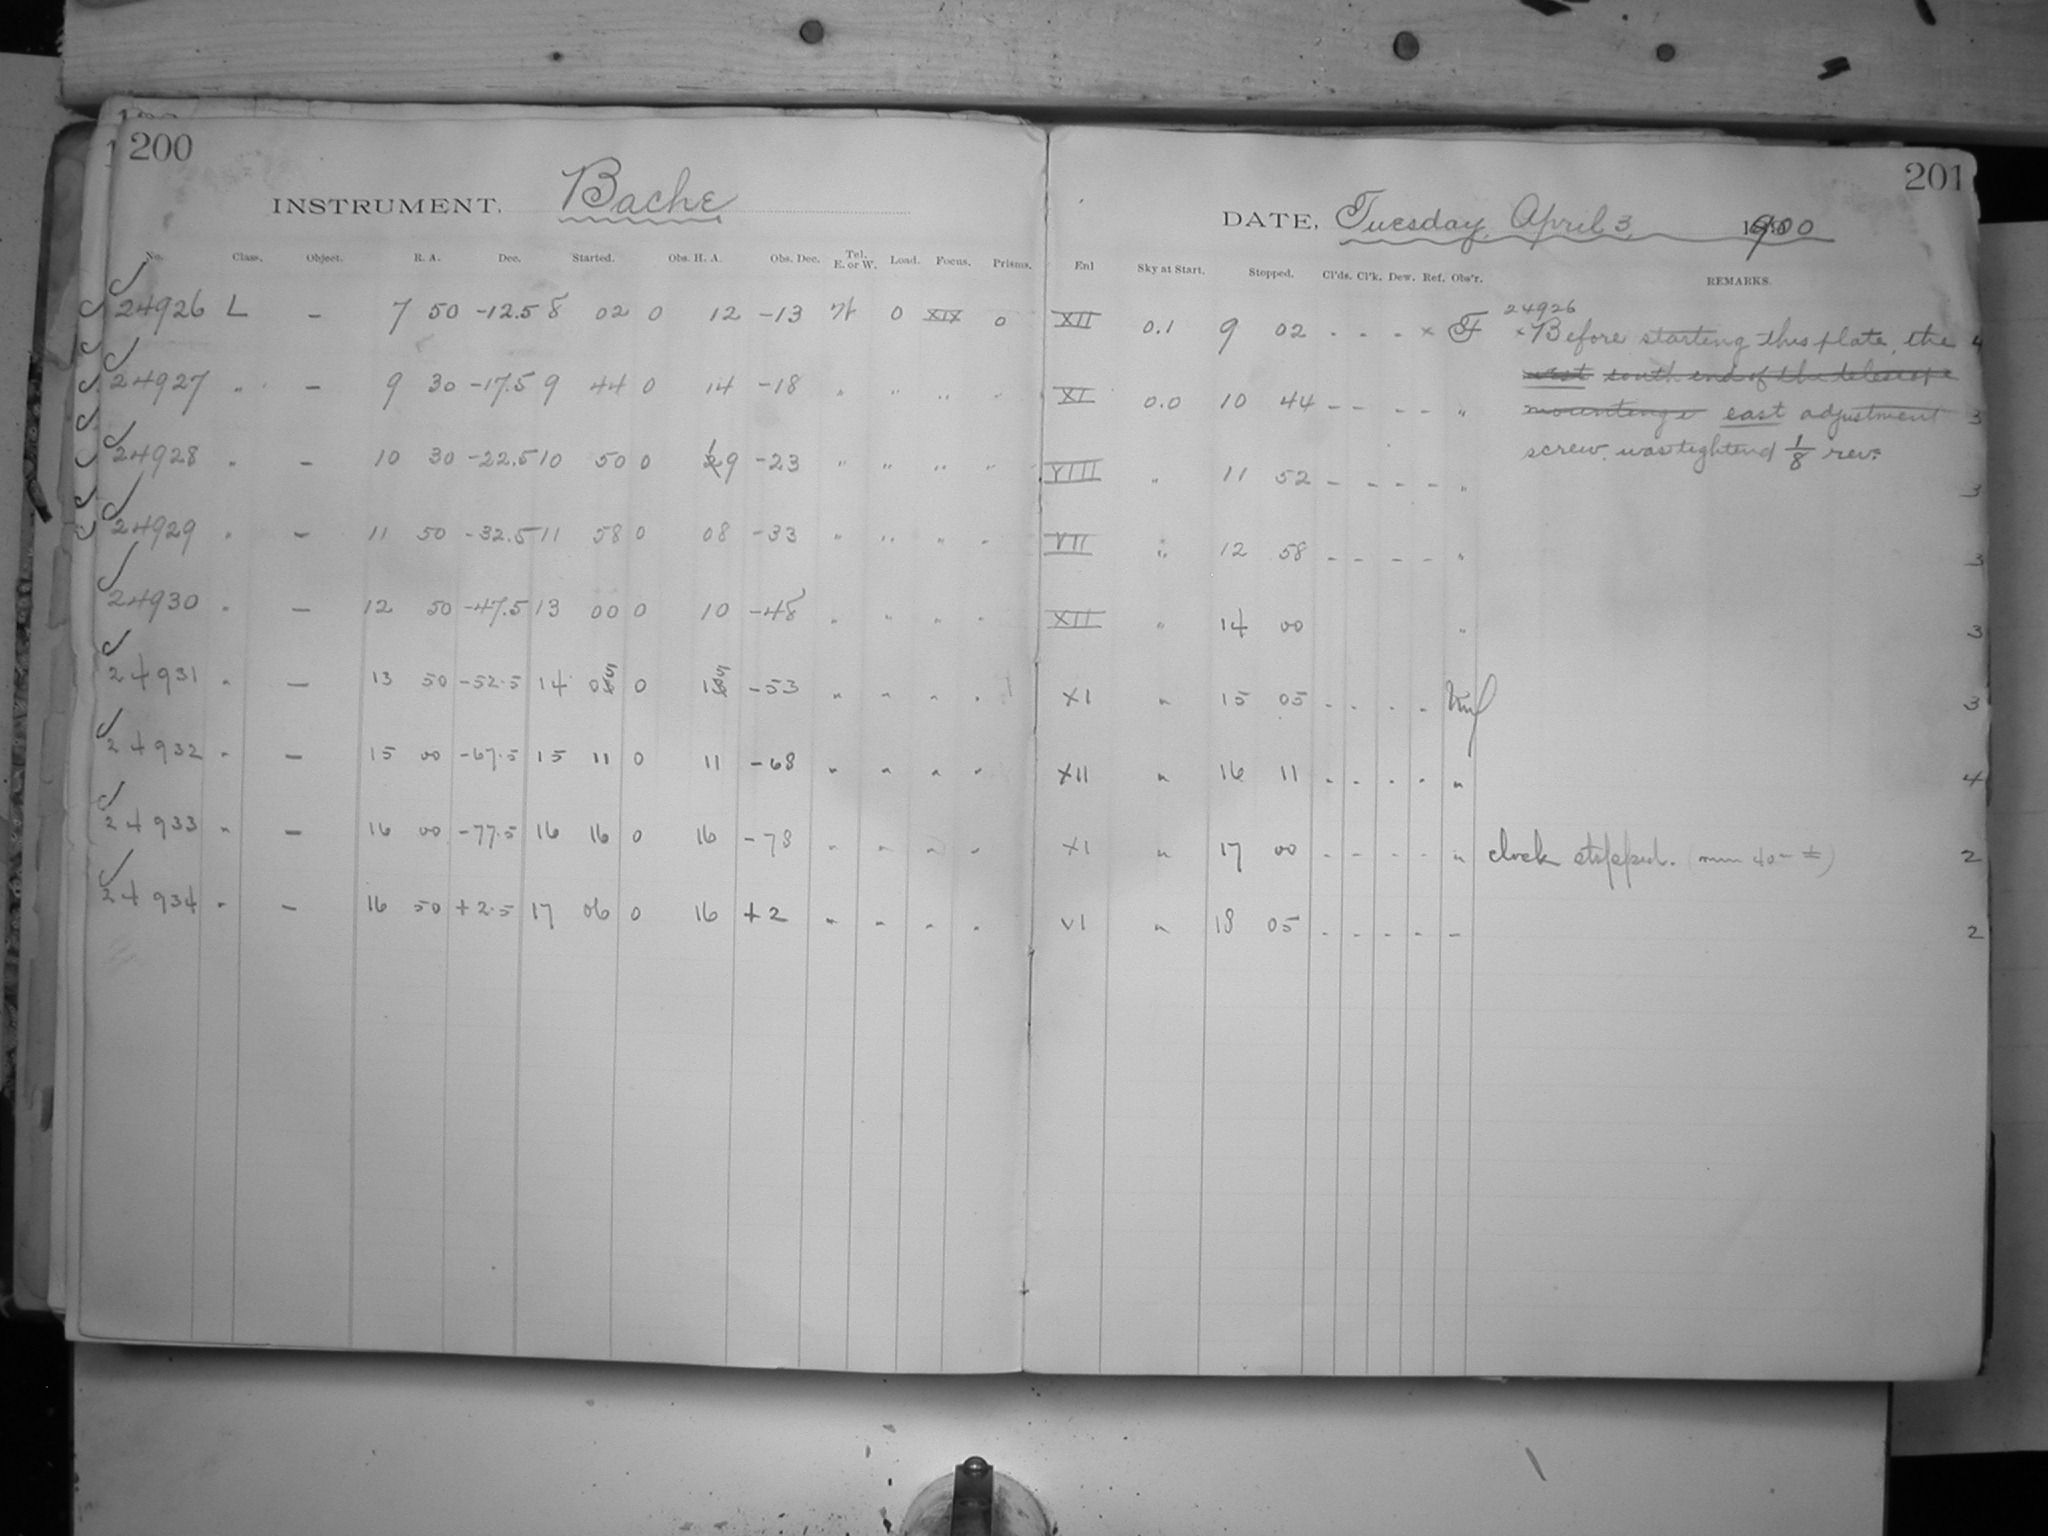 200
INSTRUMENT. Bache
No. Class. Object. R. A. Dec. Started. Obs. H. A. Obs. Dec. Tel. E. or W. Load. Focus. Prisms.
24926 L – 7 50 -12.5 8 02 0 12 -13 0 XIX 0
24927 " – 9 30 -17.5 9 44 0 14 -18 " " " "
24928 " – 10 30 -22.5 10 50 0 19 -23 " " " "
24929 " – 11 50 -32.5 11 58 0 08 -33 " " " "
24930 " – 12 50 -47.5 13 00 0 10 -48 " " " "
24931 " – 13 50 -52.5 14 05 0 15 -53 " " " "
24932 " – 15 00 -67.5 15 11 0 11 -68 " " " "
24933 " – 16 00 -77.5 16 16 0 16 -78 " " " "
24934 " – 16 50 +2.5 17 06 0 16 +2 " " " "
201
DATE, Tuesday, April 3, 1900
Enl Sky at Start. Stopped. Cl'ds. Cl'k. Dew. Ref. Obs'r. REMARKS.
24926
XII 0.1 9 02 - - - × F × Before starting this plate, the 4
west south end of the telescope
XI 0.0 10 44 - - - - " mounting east adjustment 3
screw was tightend 1/8 rev.
VIII " 11 52 - - - - " 3
VII " 12 58 - - - - " 3
XII " 14 00 " 3
XI " 15 05 - - - - 3
XII " 16 11 - - - - " 4
XI " 17 00 - - - - " clock stopped. 2
VI " 18 05 - - - - – 2